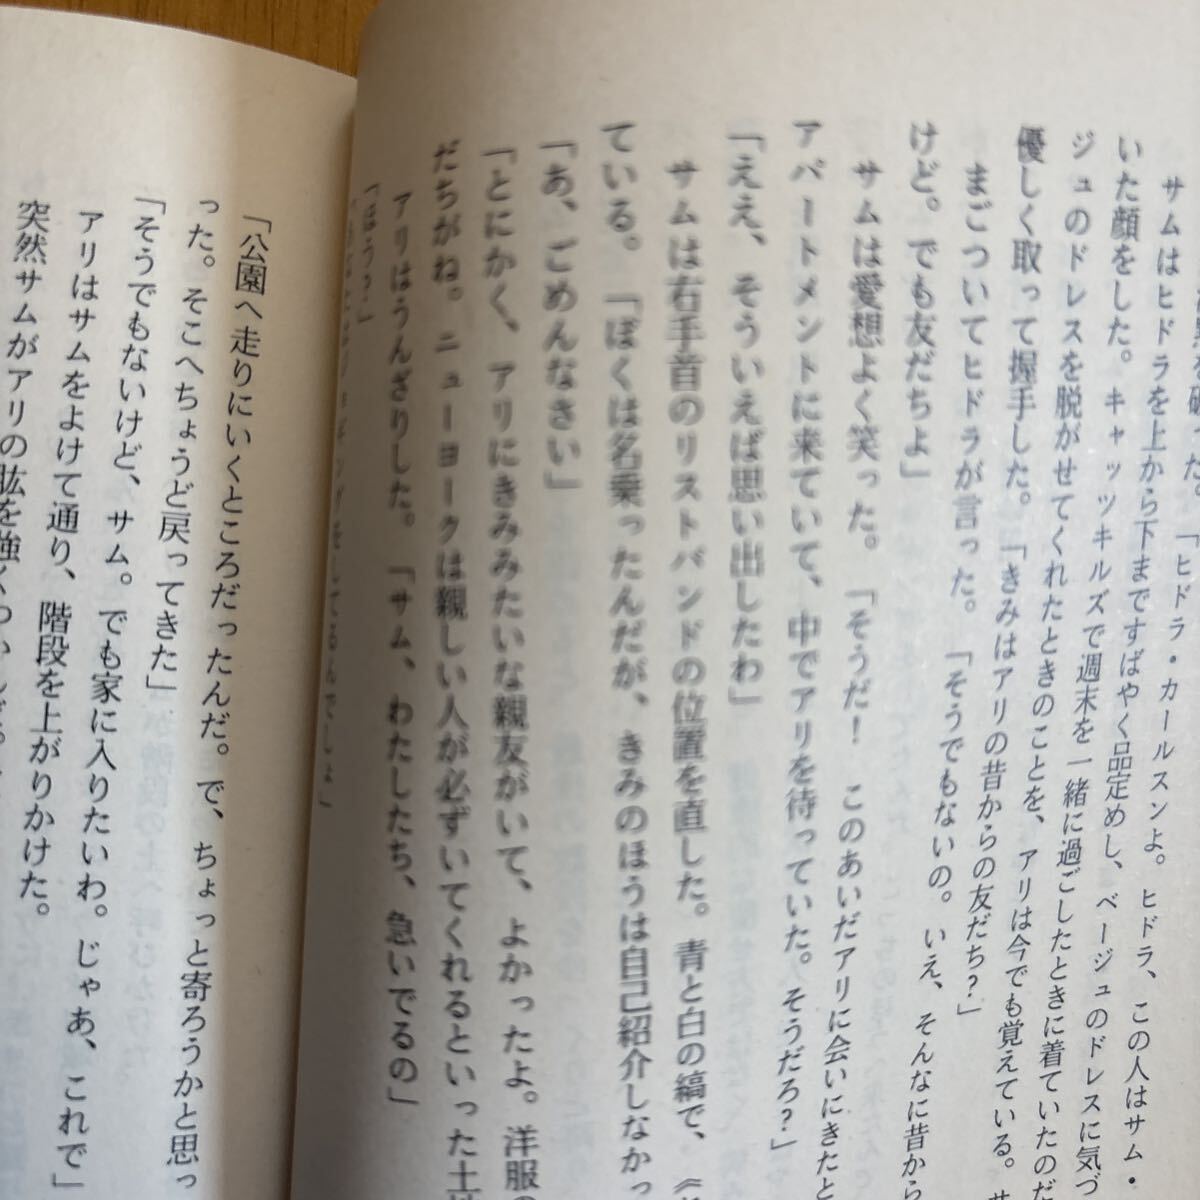 「ヒドラ・カールスンよ。ヒドラ、この人はサム・
サムはヒドラを上から下まですばやく品定めし、ベージュのドレスに気づ
いた顔をした。キャッツキルズで週末を一緒に過ごしたときに着ていたのだ
ジュのドレスを脱がせてくれたときのことを、アリは今でも覚えている。サ
優しく取って握手した。「きみはアリの昔からの友だち？」
まごついてヒドラが言った。「そうでもないの。いえ、そんなに昔から
けど。でも友だちよ」
サムは愛想よく笑った。「そうだ！　このあいだアリに会いにきたと
アパートメントに来ていて、中でアリを待っていた。そうだろ？」
「ええ、そういえば思い出したわ」
サムは右手首のリストバンドの位置を直した。青と白の縞で、
ている。「ぼくは名乗ったんだが、きみのほうは自己紹介しなかっ
「あ、ごめんなさい」
「とにかく、アリにきみみたいな親友がいて、よかったよ。洋服の
だちがね。ニューヨークは親しい人が必ずいてくれるといった土地
アリはうんざりした。「サム、わたしたち、急いでるの」
「ほう？」
ジョギングをしてるんでしょ」
「公園へ走りにいくところだったんだ。で、ちょっと寄ろうかと思っ
った。そこへちょうど戻ってきた」
「そうでもないけど、サム。でも家に入りたいわ。じゃあ、これで」
アリはサムをよけて通り、階段を上がりかけた。
突然サムがアリの肱を強くつかんだ。